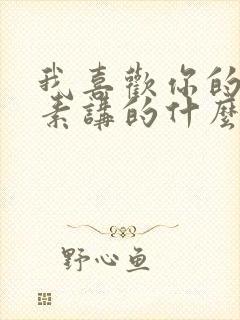 我喜歡你的
素講的什麼
野心鱼